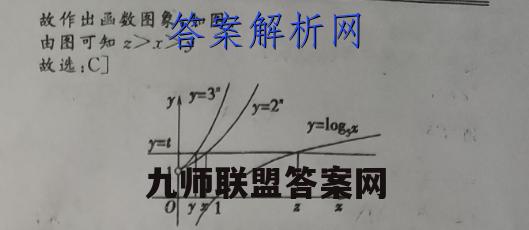 故作出函数图象,如图
答案解析网
由图可知 z>x>y
故选:C]
y
y=3ˣ
y=2ˣ
y=log₅x
y=t
九师联盟答案网
O y x 1 z x